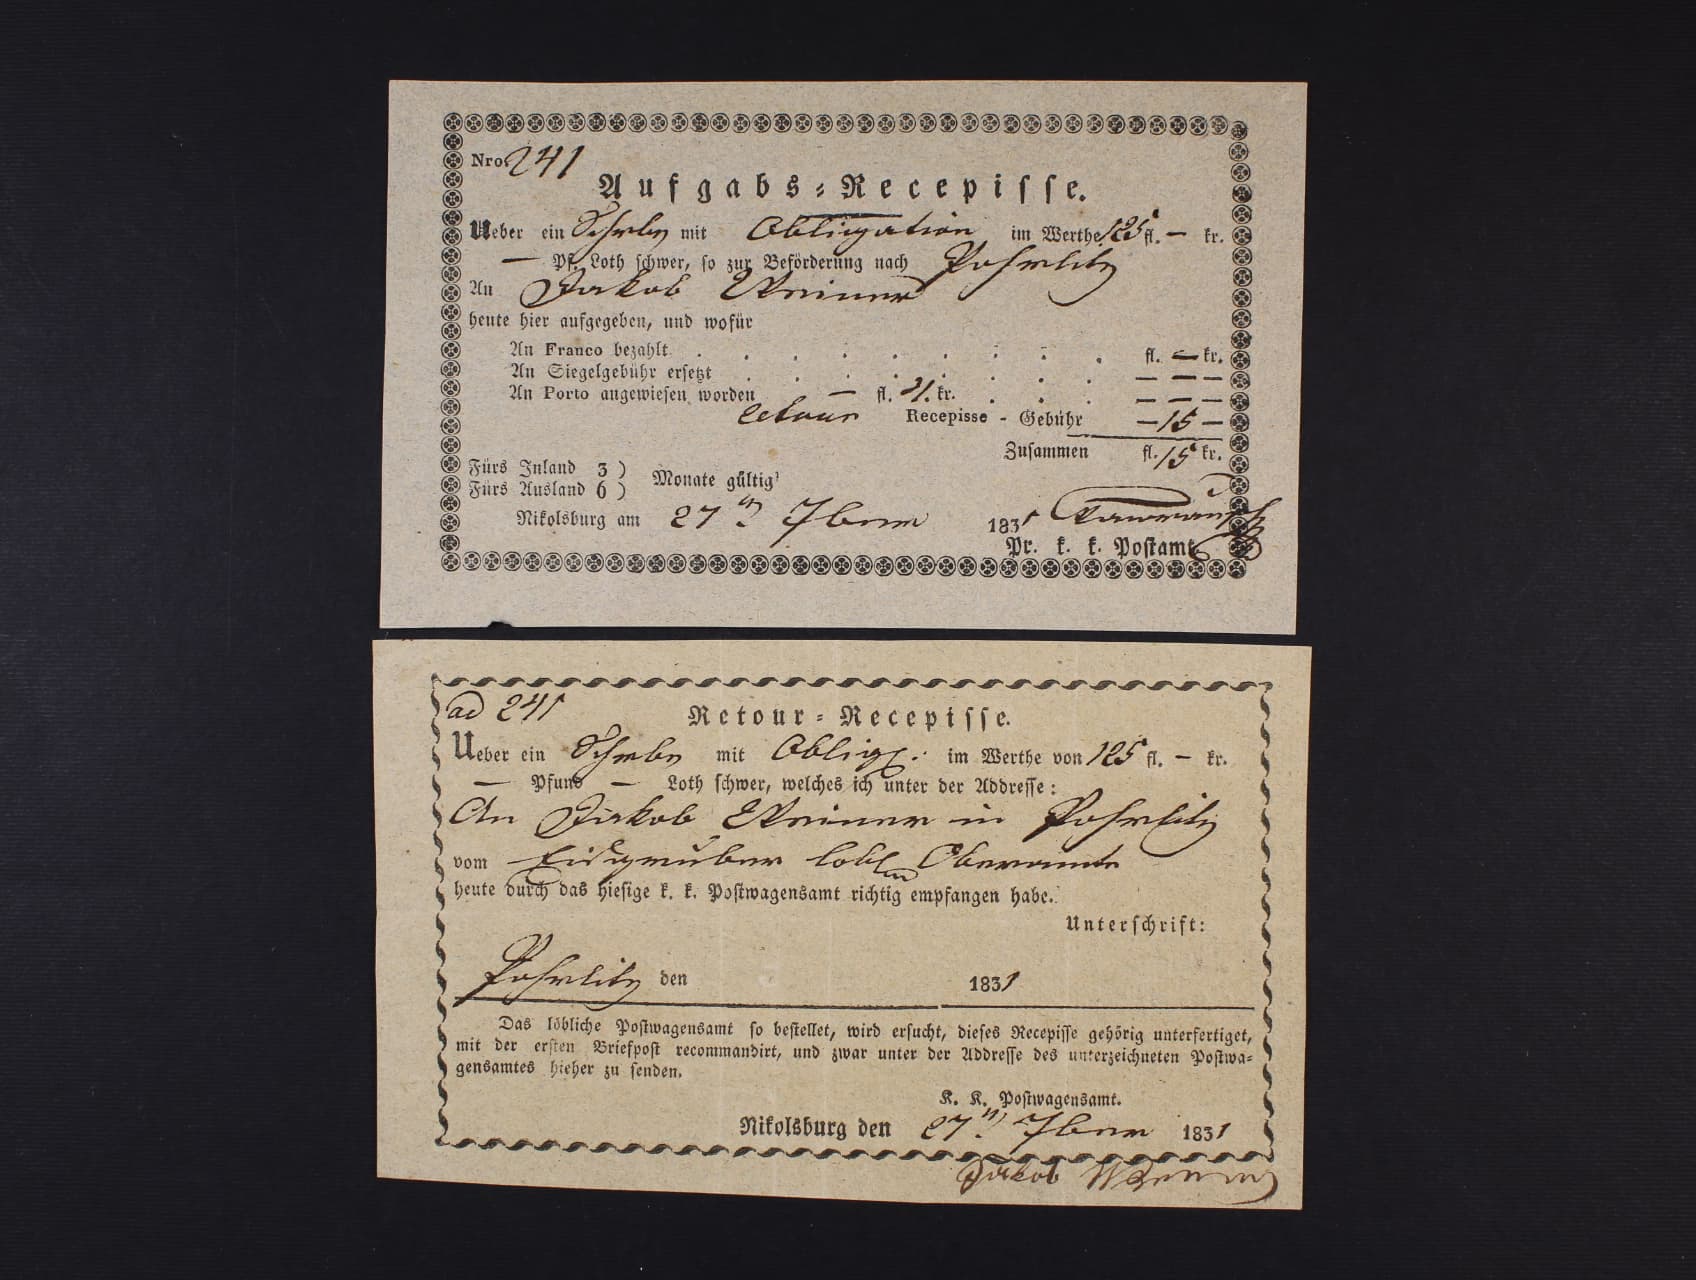 Nro. 241
Aufgabs-Recepisse.
Ueber ein Schrbn mit Obligation im Werthe 125 fl. — kr.
— Pf. Loth schwer, so zur Beförderung nach Pohrlitz
An Jakob
heute hier aufgegeben, und wofür
An Franco bezahlt . . . . . . . . . fl. — kr.
An Siegelgebühr ersetzt . . . . . . . . — — —
An Porto angewiesen worden — fl. 4. kr. . . . — — —
retour Recepisse - Gebühr — 15 —
Zusammen fl. 15 kr.
Fürs Inland 3 )
Fürs Ausland 6 ) Monate gültig
Nikolsburg am 27 7ber 1831
Pr. k. k. Postamt.
ad 241
Retour-Recepisse.
Ueber ein Schrbn mit Oblig. im Werthe von 125 fl. — kr.
— Pfund — Loth schwer, welches ich unter der Addresse:
An Jakob in Pohrlitz
vom Eisgruber löbl Oberamte
heute durch das hiesige k. k. Postwagensamt richtig empfangen habe.
Unterschrift:
Pohrlitz den 1831
Das löbliche Postwagensamt so bestellet, wird ersucht, dieses Recepisse gehörig unterfertiget,
mit der ersten Briefpost recommandirt, und zwar unter der Addresse des unterzeichneten Postwa-
gensamtes hieher zu senden.
K. K. Postwagensamt.
Nikolsburg den 27 7ber 1831
Jakob